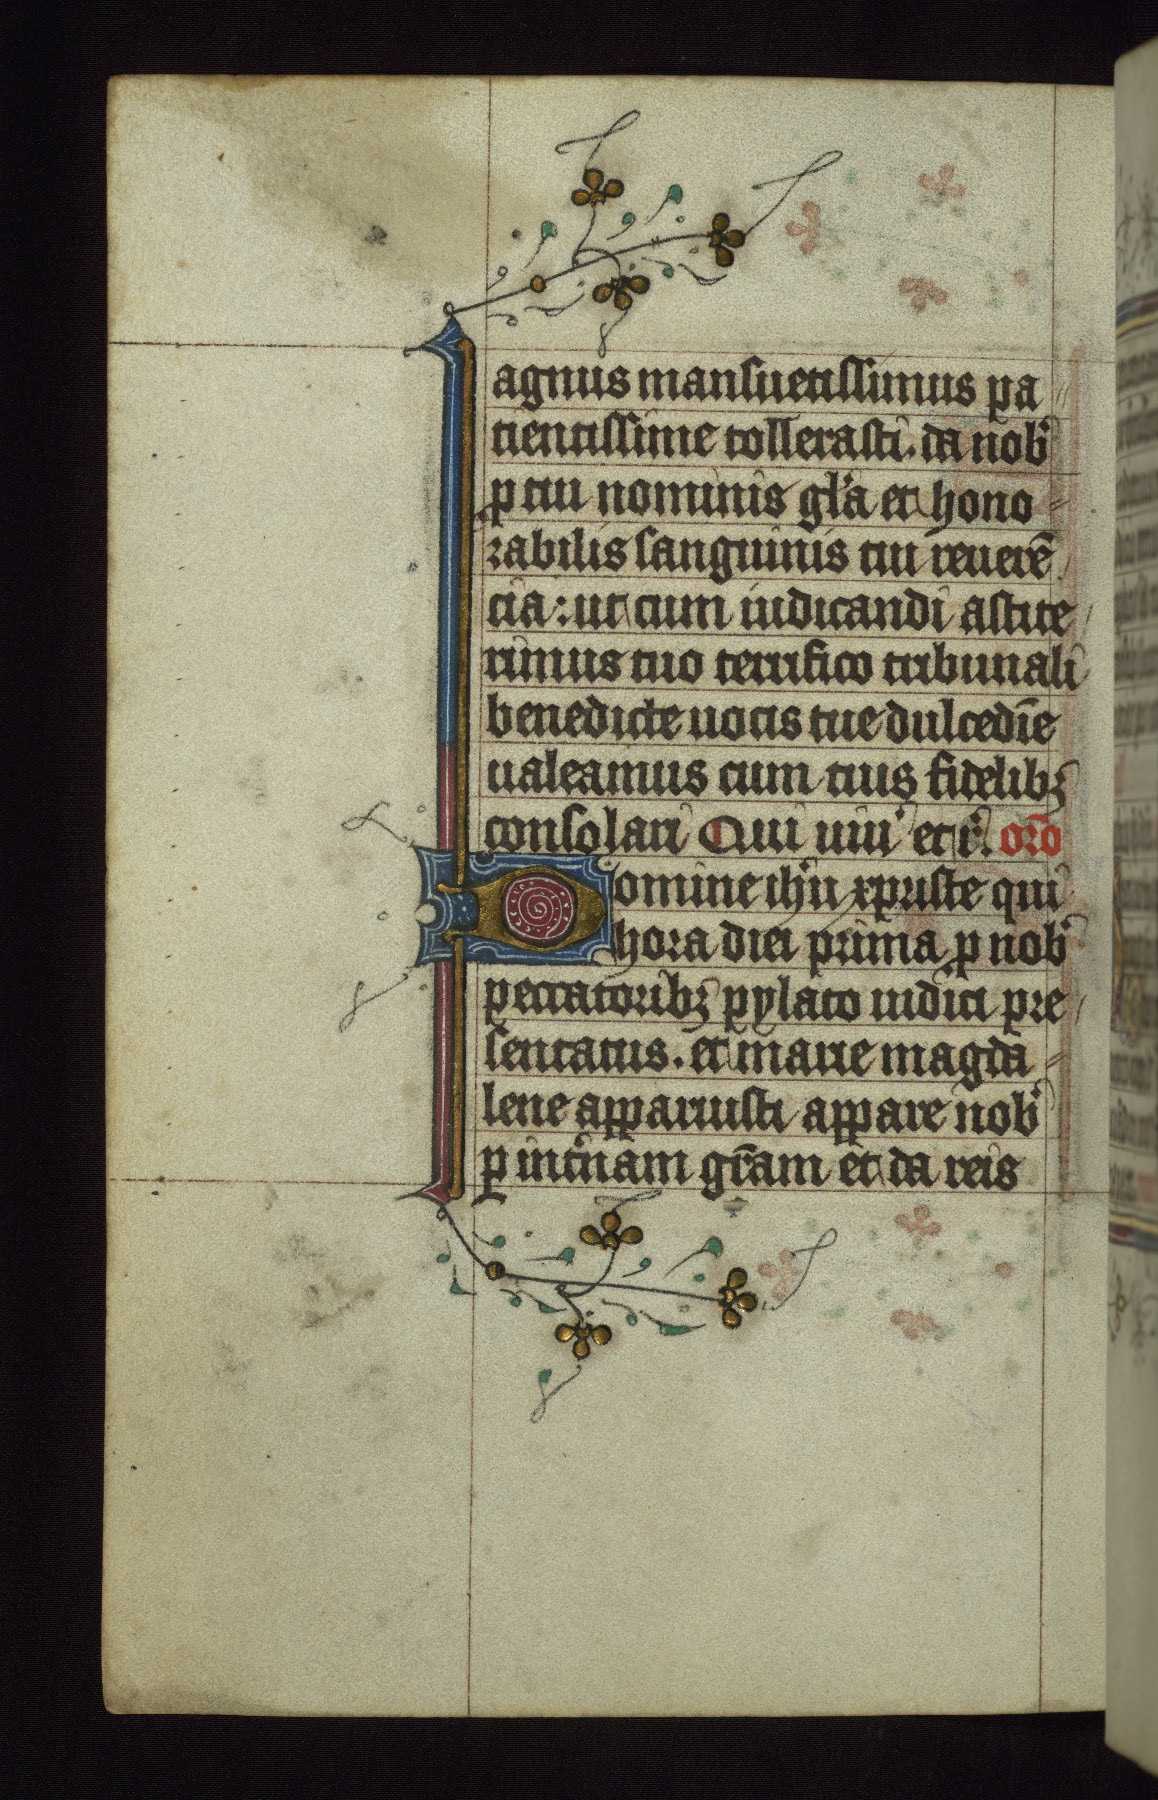 agnus mansuetissimus pa
tientissime tollerasti. da nob̾
ꝑ tui nominis gl̾a et hono
rabilis sanguinis tui reuerē
cia: ut cum iudicandi astite
rimus tuo terrifico tribunali
benedicte uocis tue dulcedīe
ualeamus cum tuis fidelibꝫ
consolari Qui uiu̾ et r̾. oro̅
Domine ih̾u xp̄riste qui
hora diei prima ꝓ nob̾
peccatoribꝫ pylato iudici pre
sentatus. et marie magda
lene apparuisti appare nob̾
ꝑ int̾nam gr̄am et da reis